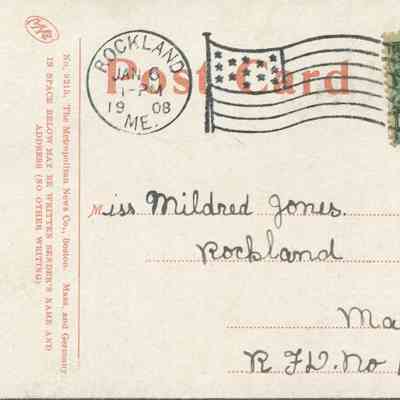 ROCKLAND
JAN 9
1-PM
19 08
ME.
Post Card
No. 9215. The Metropolitan News Co., Boston. Mass. and Germany
IN SPACE BELOW MAY BE WRITTEN SENDER'S NAME AND
ADDRESS (NO OTHER WRITING)
Miss Mildred Jones.
Rockland
Ma
R.F.D. No